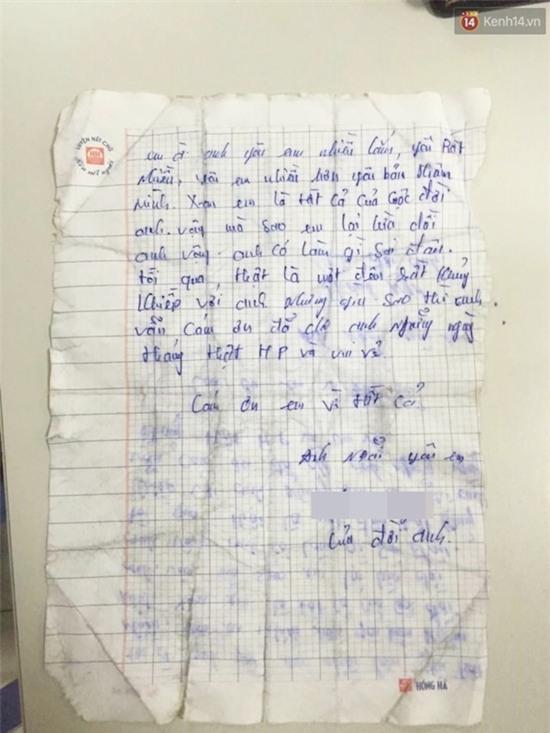 14 Kenh14.vn
LUYỆN NÉT CHỮ
HH
em à anh yêu em nhiều lắm, yêu Rất
Nhiều, yêu em nhiều hơn yêu bản thân
mình. Xem em là tất cả của cuộc đời
anh. vậy mà sao em lại lừa dối
anh vậy. anh có làm gì sai đâu.
tối qua, thật là một đêm rất khủng
khiếp với anh nhưng gì sao thì anh
vẫn cám ơn đã cho anh Những ngày
tháng thật HP và vui vẻ.
Cám ơn em vì tất cả
Anh Mãi yêu em
Của đời anh.
HỒNG HÀ